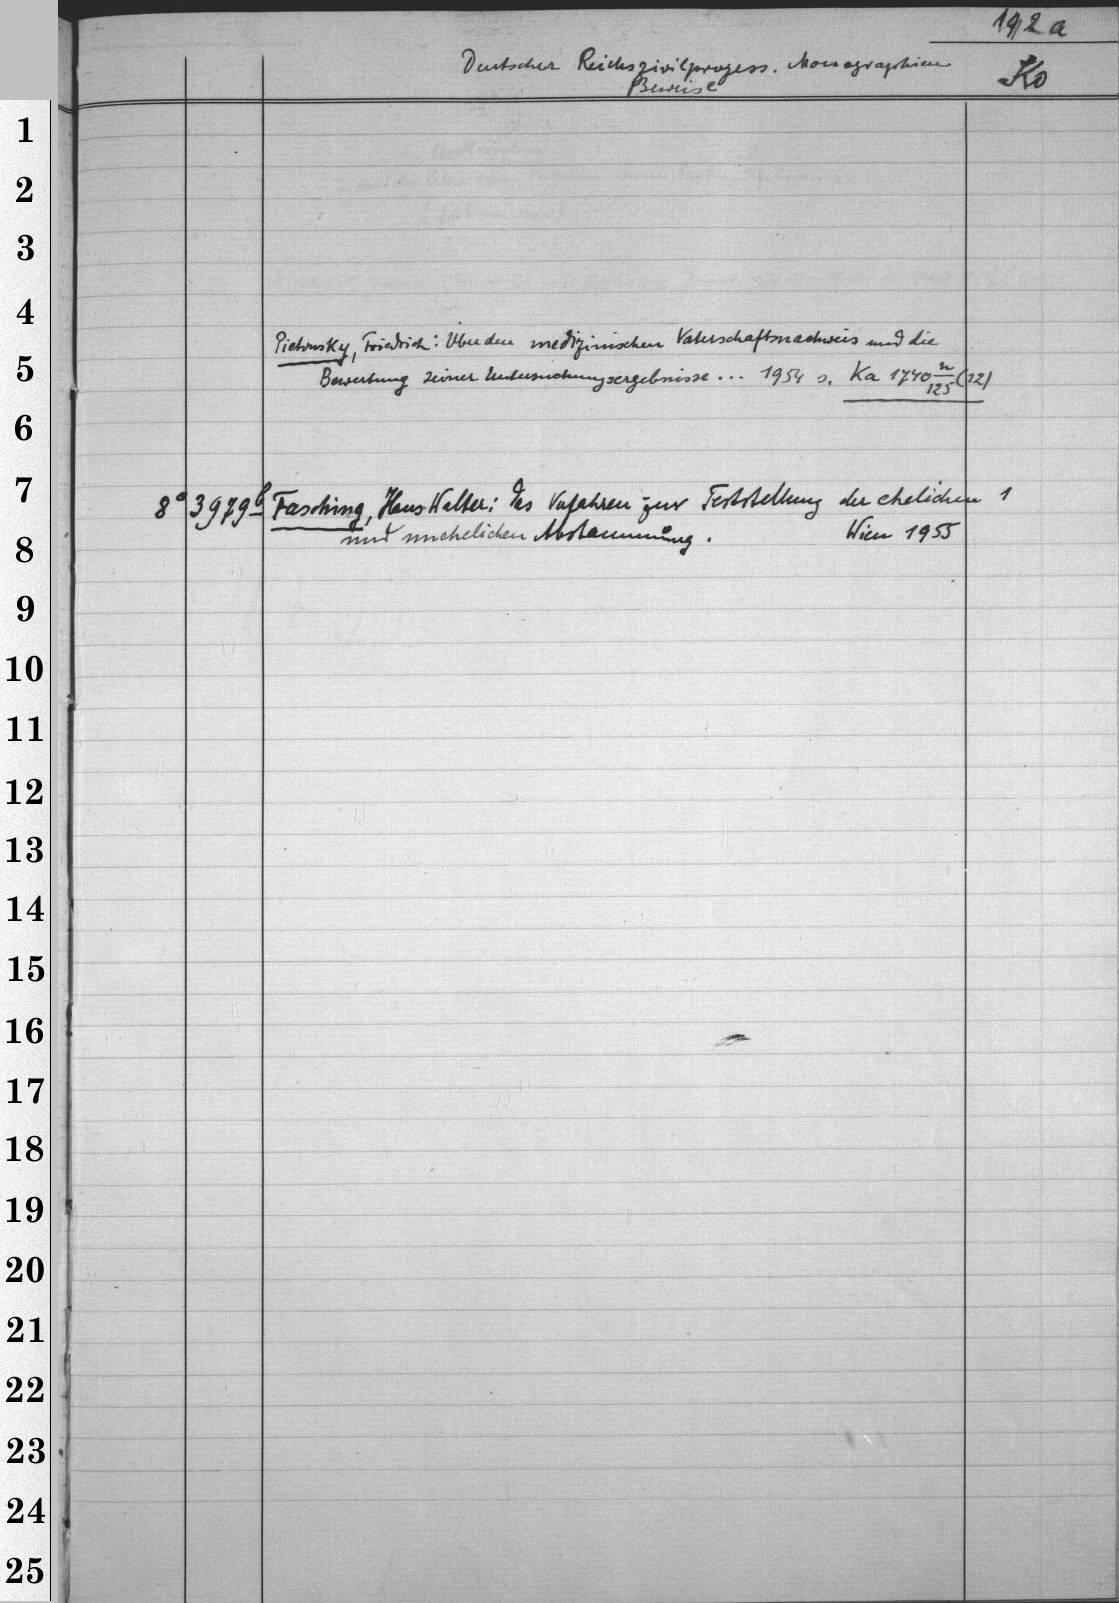 192 a
Deutscher Reichszivilprozess. Monographien
Beweise
Ko
1
2
3
4
Pietrusky, Friedrich: Über den medizinischen Vaterschaftsnachweis und die
5
Bewertung seiner Untersuchungsergebnisse ... 1954 s. Ka 1740 n/125 (12)
6
7
8° 3979 b Fasching, Hans Walter: Das Verfahren zur Feststellung der ehelichen 1
8
und unehelichen Abstammung. Wien 1955
9
10
11
12
13
14
15
16
17
18
19
20
21
22
23
24
25